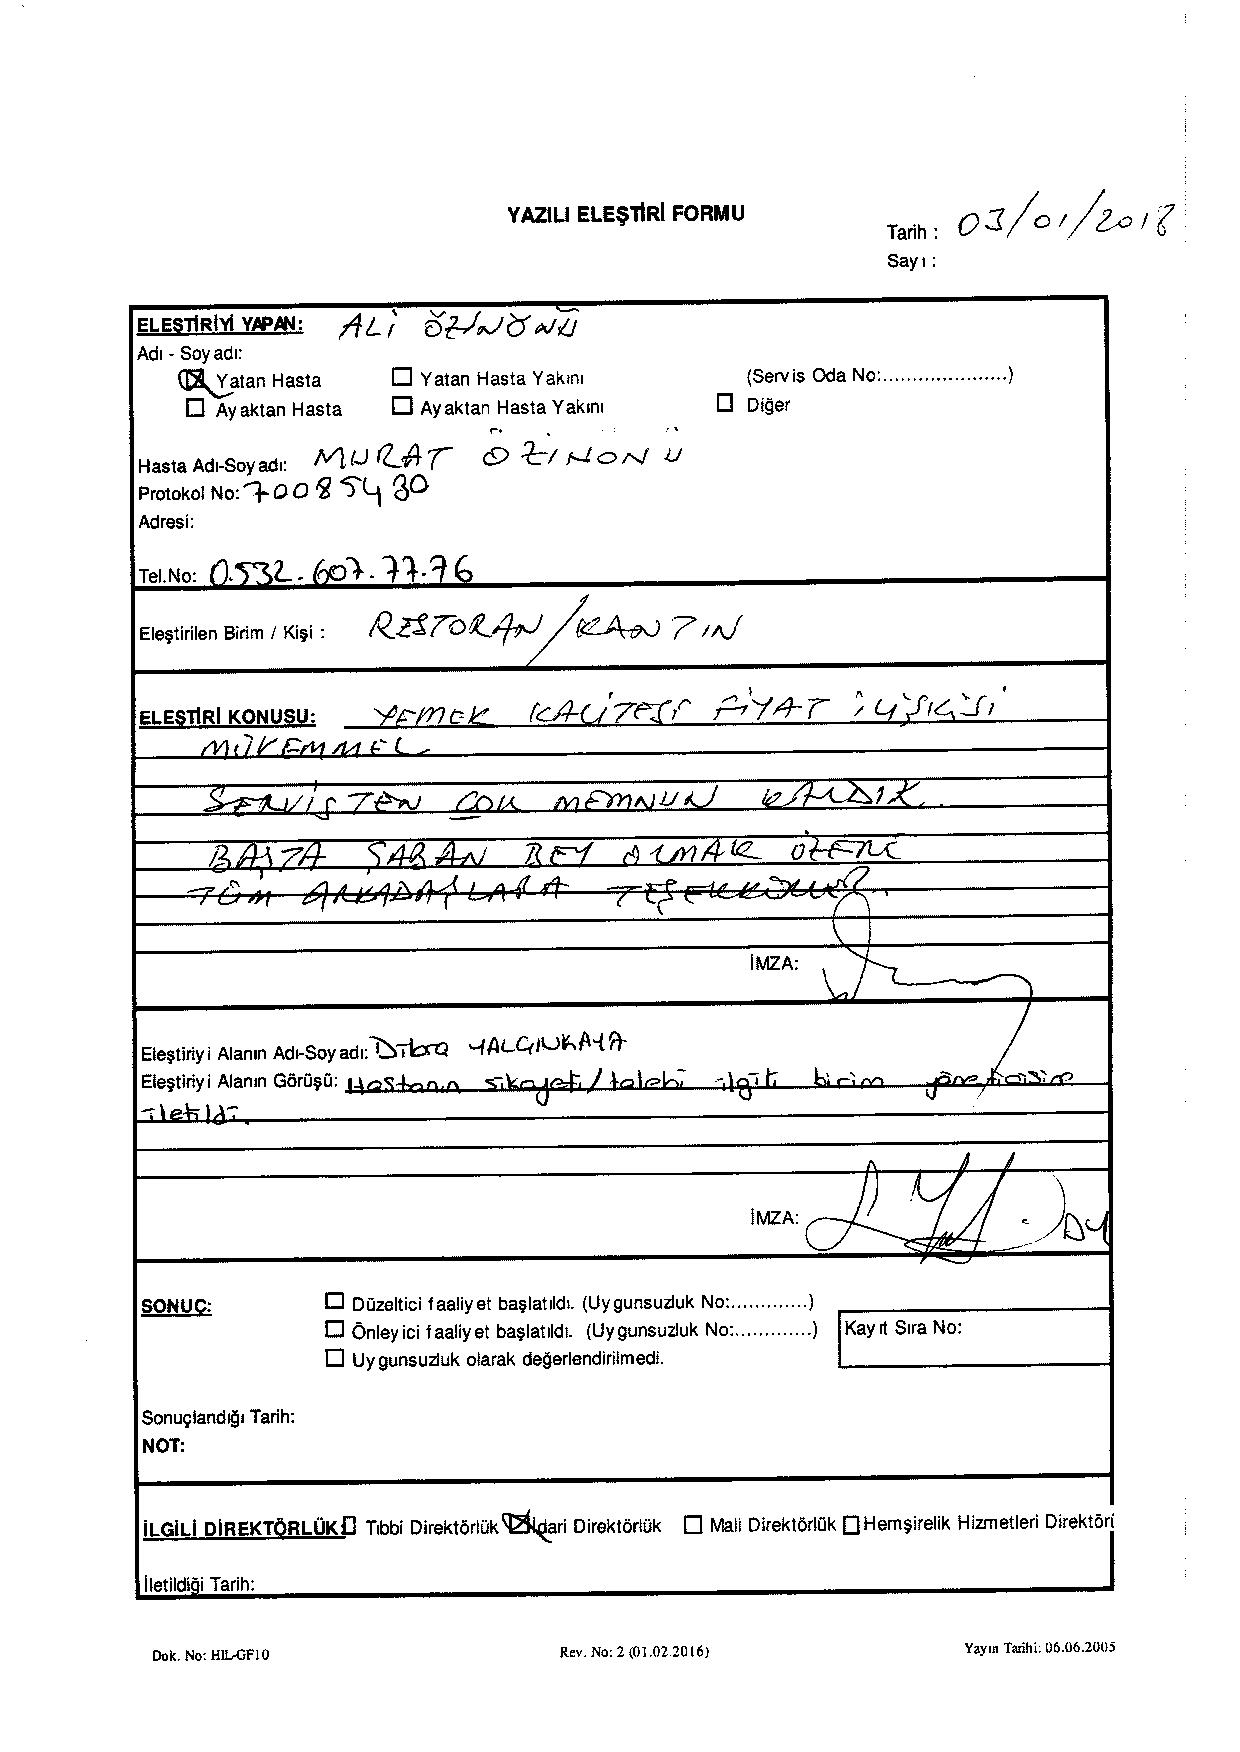 YAZILI ELEŞTİRİ FORMU
Tarih : 03/01/2018
Sayı :
ELEŞTİRİYİ YAPAN: ALİ ÖZİNÖNÜ
Adı - Soyadı:
Yatan Hasta Yatan Hasta Yakını (Servis Oda No:.....................)
Ayaktan Hasta Ayaktan Hasta Yakını Diğer
Hasta Adı-Soyadı: MURAT ÖZİNÖNÜ
Protokol No: 70085430
Adresi:
Tel.No: 0.532.607.77.76
Eleştirilen Birim / Kişi : RESTORAN/KANTİN
ELEŞTİRİ KONUSU: YEMEK KALİTESİ FİYAT İLİŞKİSİ
MÜKEMMEL
SERVİSTEN ÇOK MEMNUN KALDIK.
BAŞTA ŞABAN BEY OLMAK ÜZERE
TÜM ARKADAŞLARA TEŞEKKÜRLER.
İMZA:
Eleştiriyi Alanın Adı-Soyadı: YALÇINKAYA
Eleştiriyi Alanın Görüşü: Hastanın şikayeti/talebi ilgili birim yöneticisine
iletildi.
İMZA:
SONUÇ: Düzeltici faaliyet başlatıldı. (Uygunsuzluk No:.............)
Önleyici faaliyet başlatıldı. (Uygunsuzluk No:.............) Kayıt Sıra No:
Uygunsuzluk olarak değerlendirilmedi.
Sonuçlandığı Tarih:
NOT:
İLGİLİ DİREKTÖRLÜK Tıbbi Direktörlük İdari Direktörlük Mali Direktörlük Hemşirelik Hizmetleri Direktöri
İletildiği Tarih:
Dok. No: HIL-GF10 Rev. No: 2 (01.02.2016) Yayın Tarihi: 06.06.2005